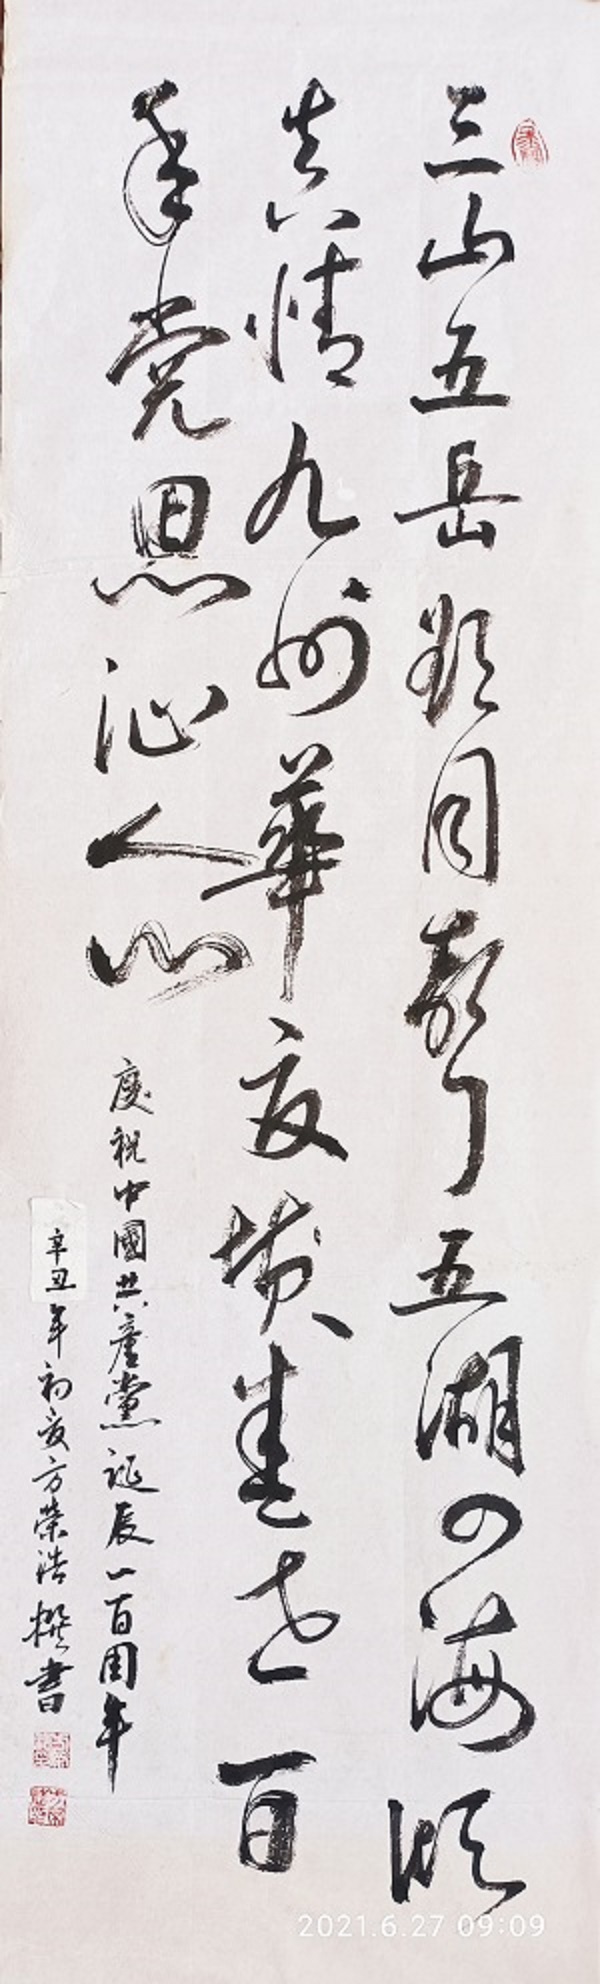 三山五岳雖同壽了五湖四海頌
真情九州華夏贊盛世百
年党恩沁人心
慶祝中國共產黨誕辰一百周年
辛丑年初夏方榮浩撰書
2021.6.27 09:09